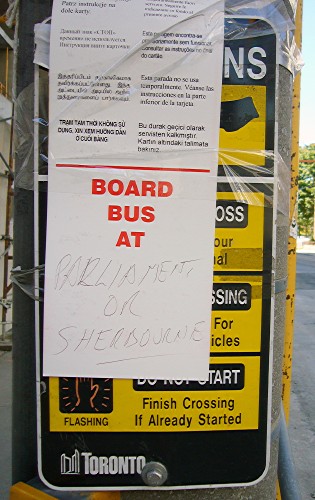 Patez instrukcje na
dole karty.
Данный знак «СТОП»
временно не используется.
Инструкции внизу карточки.
TRẠM TẠM THỜI KHÔNG SỬ
DỤNG, XIN XEM HƯỚNG DẪN
Ở CUỐI BẢNG.
Esta paragem encontra-se
consultar as instruções no fim
do cartão.
Esta parada no se usa
temporalmente. Véanse las
instrucciones en la parte
inferior de la tarjeta.
Bu durak geçici olarak
servisten kalkmıştır.
Kartın altındaki talimata
bakınız.
NS
BOARD
BUS
AT
PARLIAMENT
OR
SHERBOURNE
OSS
our
nal
SSING
For
icles
DO NOT START
Finish Crossing
If Already Started
FLASHING
TORONTO